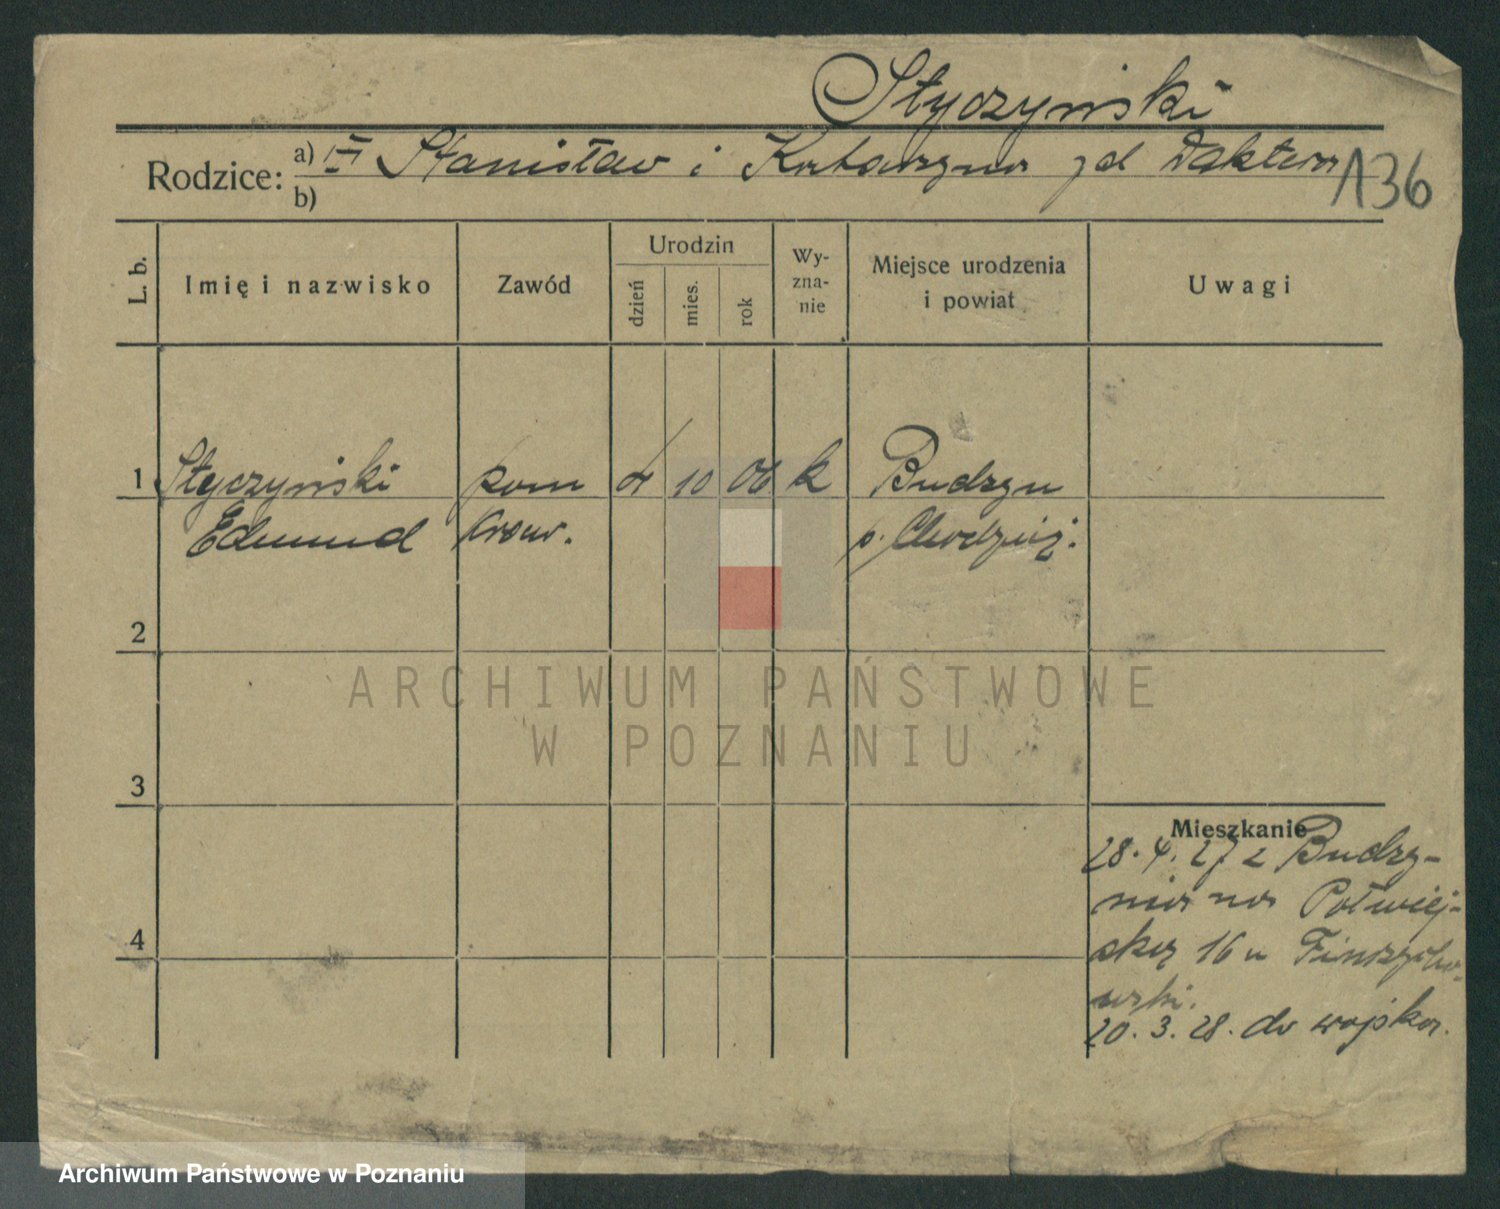 Styczyński
Rodzice: a) Stanisław i Katarzyna zd
b)
136
L. b.
Imię i nazwisko
Zawód
Urodzin
dzień
mies.
rok
Wy-
zna-
nie
Miejsce urodzenia
i powiat
Uwagi
1 Styczyński pom 4 10 06 k Budzyn
Edmund kraw. p. Chodzież.
2
3
4
Mieszkanie
28. 4. 27 z Budzy-
nia na Półwiej-
ską 16 u
20. 3. 28. do wojska.
ARCHIWUM PAŃSTWOWE
W POZNANIU
Archiwum Państwowe w Poznaniu